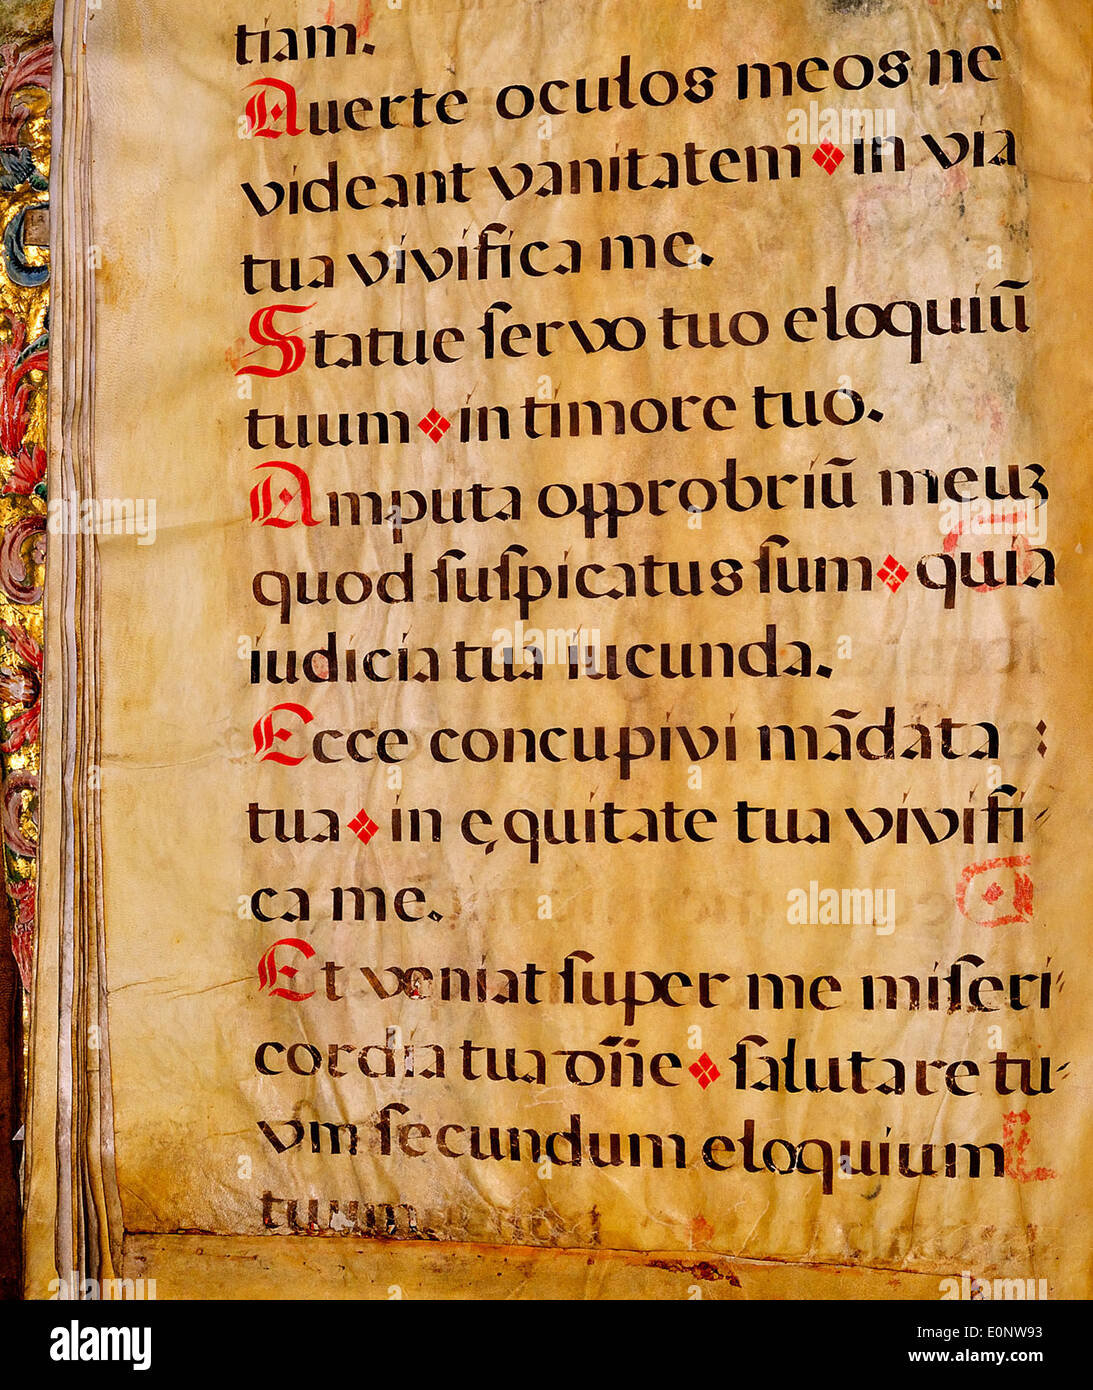 tiam.
Auerte oculos meos ne
videant vanitatem in via
tua vivifica me.
Statue ſervo tuo eloquiū
tuum in timore tuo.
Amputa opprobriū meuʒ
quod ſuſpicatus ſum quia
iudicia tua iucunda.
Ecce concupivi mādata :
tua in ęquitate tua vivifi-
ca me.
Et veniat ſuper me miſeri-
cordia tua dñe ſalutare tu-
vm ſecundum eloquium
tuum
alamy
Image ID: E0NW93
www.alamy.com